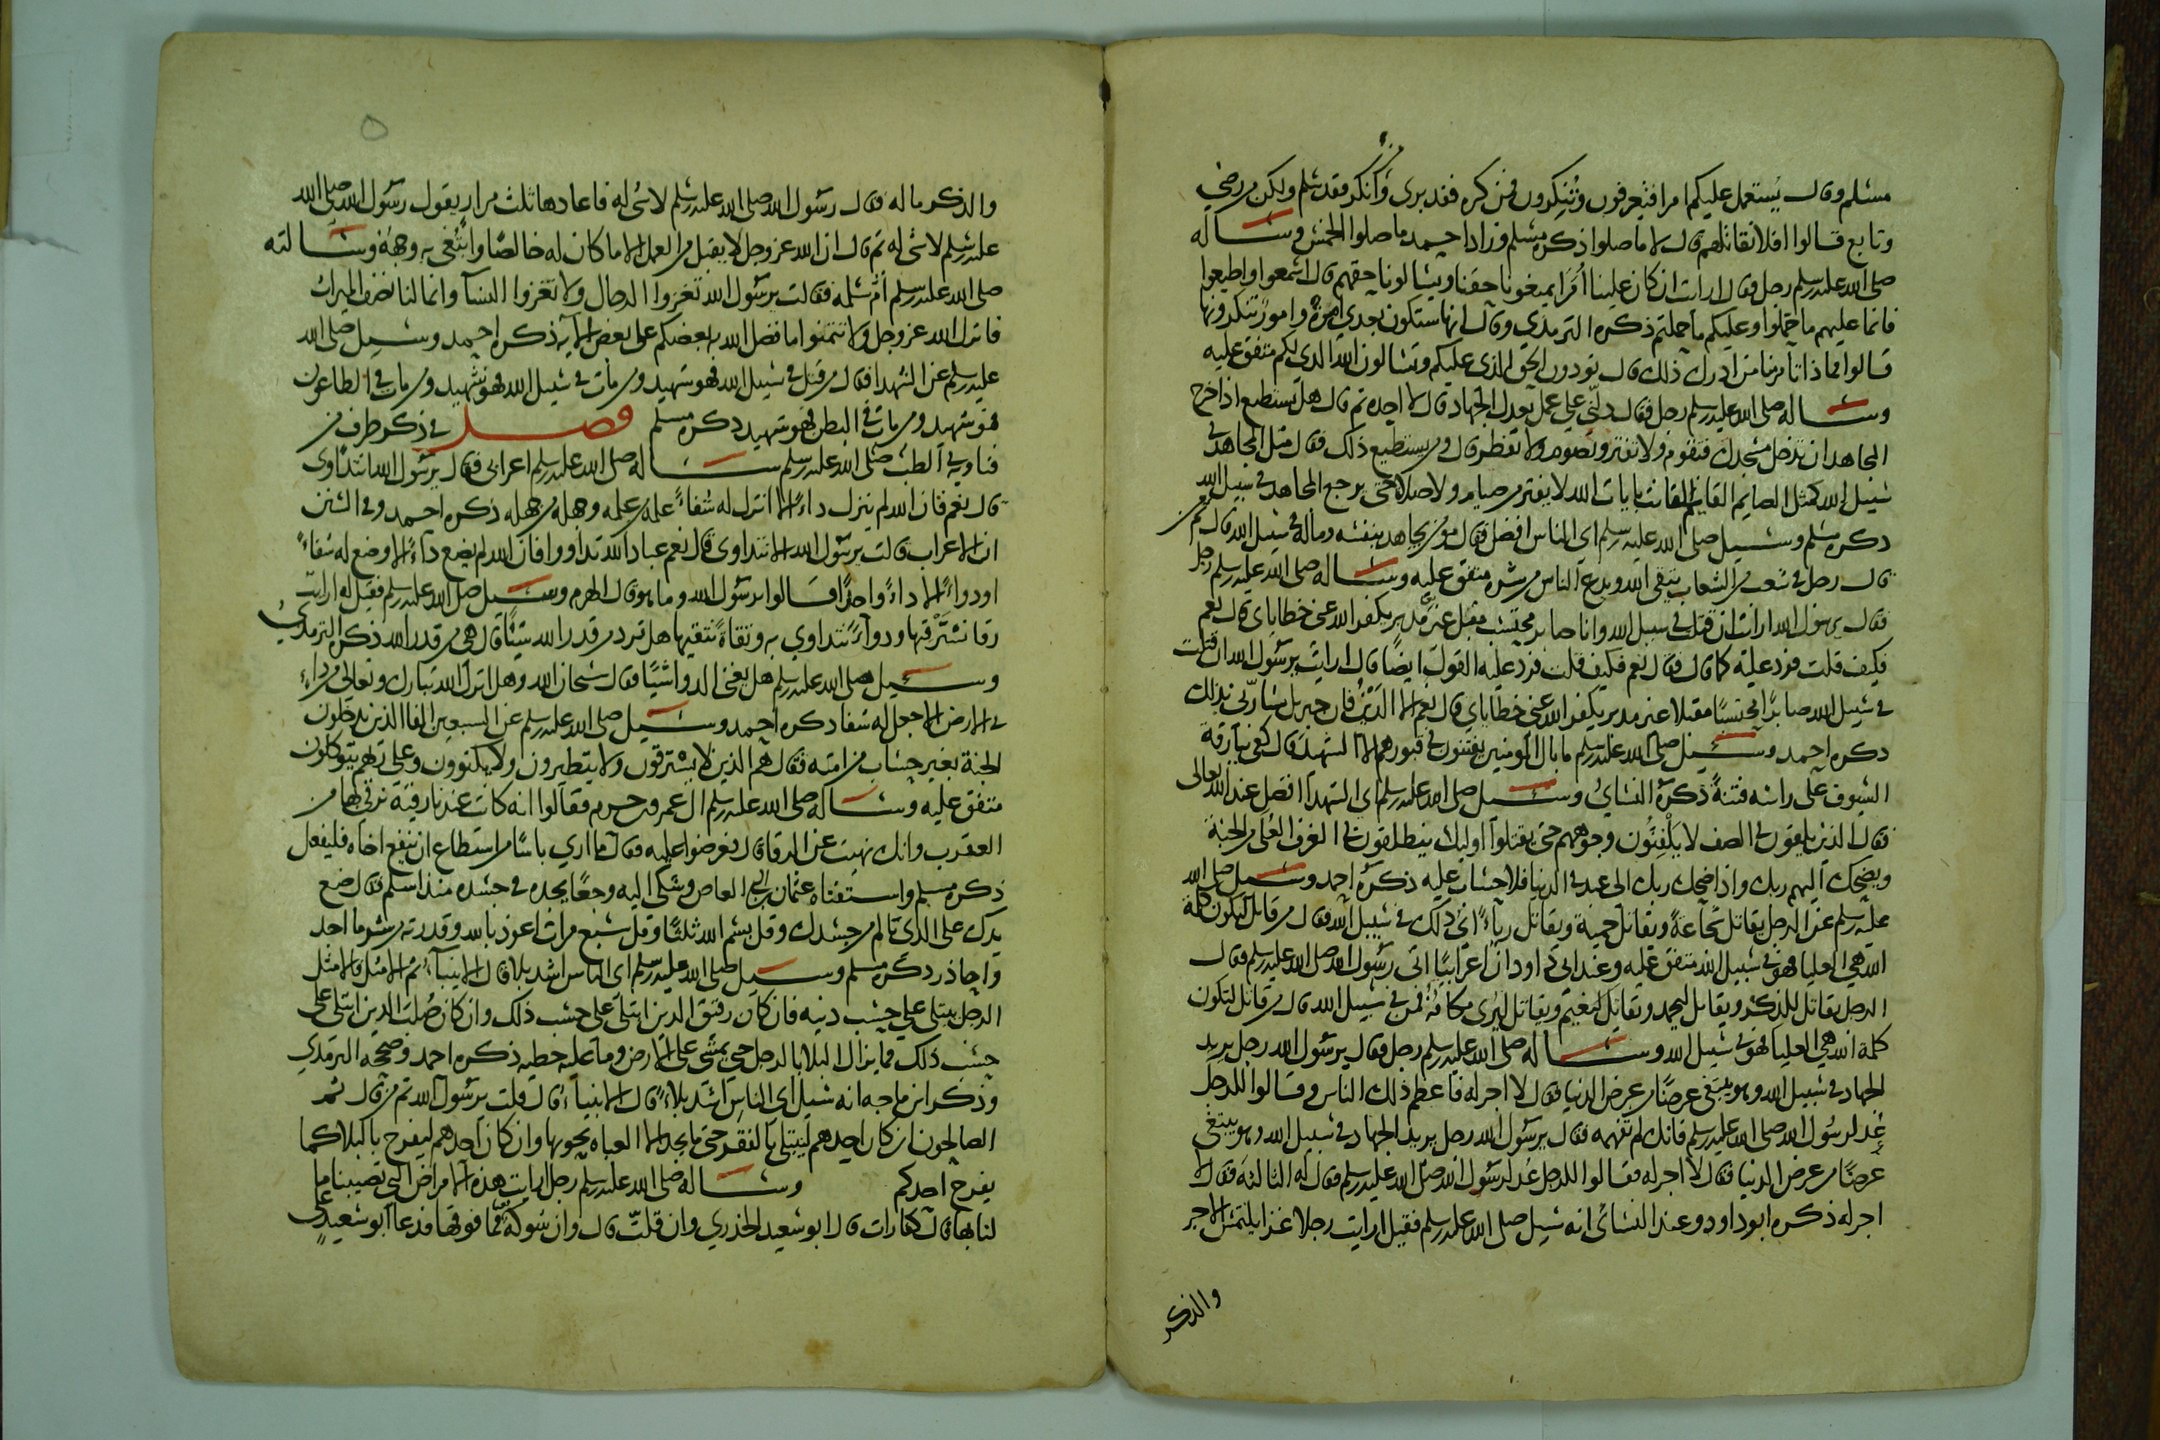 مسلم وقال يستعمل عليكم امرا فتعرفون وتنكرون فمن كره فقد برى ومن انكر فقد سلم ولكن من رضي
وتابع قالوا افلا نقاتلهم قال لا ما صلوا ذكره مسلم وزاد احمد ما صلوا الخمس وساله
صلى الله عليه وسلم رجل فقال ارايت ان كان علينا امرا يمنعونا حقنا ويسالونا حقهم قال اسمعوا واطيعوا
فانما عليهم ما حملوا وعليكم ما حملتم ذكره الترمذي وقال انها ستكون بعدي اثرة وامور تنكرونها
قالوا فماذا تامرنا من ادرك ذلك قال تودون الحق الذي عليكم وتسالون الله الذي لكم متفق عليه
وساله صلى الله عليه وسلم رجل فقال دلني على عمل يعدل الجهاد قال لا اجده ثم قال هل تستطيع اذا خرج
المجاهد ان تدخل مسجدك فتقوم ولا تفتر وتصوم ولا تفطر قال ومن يستطيع ذلك فقال مثل المجاهد في
سبيل الله كمثل الصايم القايم القانت بايات الله لا يفتر من صيام ولا صلاة حتى يرجع المجاهد في سبيل الله
ذكره مسلم وسيل صلى الله عليه وسلم اى الناس افضل فقال مومن يجاهد بنفسه وماله في سبيل الله قال ثم من
قال رجل في شعب من الشعاب يتقى الله ويدع الناس من شره متفق عليه وساله صلى الله عليه وسلم رجل
فقال يرسول الله ارايت ان قتلت في سبيل الله وانا صابر محتسب مقبل غير مدبر يكفر الله عنى خطاياى قال نعم
فكيف قلت فرد عليه كما قال فقال نعم فكيف قلت فرد عليه القول ايضا قال ارايت يرسول الله ان قتلت
في سبيل الله صابرا محتسبا مقبلا غير مدبر يكفر الله عنى خطاياي قال نعم الا الدين فان جبريل سارنى بذلك
ذكره احمد وسيل صلى الله عليه وسلم ما بال المومنين يفتنون في قبورهم الا الشهيد قال كفى ببارقة
السيوف على راسه فتنة ذكره النساي وسيل صلى الله عليه وسلم اى الشهدا افضل عند الله تعالى
فقال الذين يلقون في الصف لا يلفتون وجوههم حتى يقتلوا اوليك ينطلقون في الغرف العلى من الجنة
ويضحك اليهم ربك واذا ضحك ربك الى عبد في الدنيا فلا حساب عليه ذكره احمد وسيل صلى الله
عليه وسلم عن الرجل يقاتل شجاعة ويقاتل حمية ويقاتل رياء اى ذلك في سبيل الله فقال من قاتل لتكون كلمة
الله هي العليا فهو في سبيل الله متفق عليه وعند ابى داود ان اعرابيا اتى رسول الله صلى الله عليه وسلم فقال
الرجل يقاتل للذكر ويقاتل ليحمد ويقاتل ليغنم ويقاتل ليرى مكانه فمن في سبيل الله قال من قاتل لتكون
كلمة الله هي العليا فهو في سبيل الله وساله صلى الله عليه وسلم رجل فقال يرسول الله رجل يريد
الجهاد في سبيل الله وهو يبتغى عرضا من عرض الدنيا فقال لا اجر له فاعظم ذلك الناس وقالوا للرجل
عد لرسول الله صلى الله عليه وسلم فانك لم تفهمه فقال يرسول الله رجل يريد الجهاد في سبيل الله وهو يبتغى
عرضا من عرض الدنيا فقال لا اجر له فقالوا للرجل عد لرسول الله صلى الله عليه وسلم فقال له الثالثة فقال لا
اجر له ذكره ابو داود وعند النسائ انه سيل صلى الله عليه وسلم فقيل ارايت رجلا غزا يلتمس الاجر
والذكر
والذكر ما له فقال رسول الله صلى الله عليه وسلم لا شى له فاعادها ثلث مرار يقول رسول الله صلى الله
عليه وسلم لا شى له ثم قال ان الله عز وجل لا يقبل من العمل الا ما كان له خالصا وابتغى به وجهه وسالته
صلى الله عليه وسلم ام سلمه فقالت يرسول الله تغزوا الرجال ولا تغزوا النسآ وانما لنا نصف الميراث
فانزل الله عز وجل ولا تتمنوا ما فضل الله به بعضكم على بعض الايه ذكره احمد وسيل صلى الله
عليه وسلم عن الشهدا فقال من قتل في سبيل الله فهو شهيد ومن مات في سبيل الله فهو شهيد ومن مات في الطاعون
فهو شهيد ومن مات في البطن فهو شهيد ذكره مسلم فصل في ذكر طرف من
فتاويه في الطب صلى الله عليه وسلم ساله صلى الله عليه وسلم اعرابى فقال يرسول الله انتداوى
قال نعم فان الله لم ينزل داء الا انزل له شفاء علمه من علمه وجهله من جهله ذكره احمد وفي السنن
ان الاعراب قالت يرسول الله الا نتداوى قال نعم عباد الله تداووا فان الله لم يضع داء الا وضع له شفاء
او دواء الا داء واحدا قالوا يرسول الله وما هو قال الهرم وسيل صلى الله عليه وسلم فقيل له ارايت
رقا نسترقيها ودواء نتداوي به وتقاة نتقيها هل ترد من قدر الله شيئا قال هي من قدر الله ذكره الترمذي
وسيل صلى الله عليه وسلم هل يغنى الدوا شيئا فقال سبحان الله وهل انزل الله تبارك وتعالى من داء
في الارض الا جعل له شفا ذكره احمد وسيل صلى الله عليه وسلم عن السبعين الفا الذين يدخلون
الجنة بغير حساب من امته فقال هم الذين لا يسترقون ولا يتطيرون ولا يكتوون وعلى ربهم يتوكلون
متفق عليه وساله صلى الله عليه وسلم ال عمرو بن حزم فقالوا انه كانت عندنا رقية نرقى بها من
العقرب وانك نهيت عن الرقا قال فعرضوا عليه فقال ما اري باسا من استطاع ان ينفع اخاه فليفعل
ذكره مسلم واستفتاه عثمان بن ابي العاص وشكى اليه وجعا يجده في جسده منذ اسلم فقال ضع
يدك على الذى تالم من جسدك وقل بسم الله ثلثا وقل سبع مرات اعوذ بالله وقدرته من شر ما اجد
واحاذر ذكره مسلم وسيل صلى الله عليه وسلم اى الناس اشد بلا قال الانبيآء ثم الامثل فالامثل
الرجل يبتلى علي حسب دينه فان كان رقيق الدين ابتلى على حسب ذلك وان كان صلب الدين ابتلى على
حسب ذلك فما يزال البلا بالرجل حتى يمشى على الارض وما عليه خطيه ذكره احمد وصححه الترمذي
وذكر ابن ماجه انه سيل اى الناس اشد بلاء قال الانبياء قال قلت يرسول الله ثم من قال ثم
الصالحون ان كان احدهم ليبتلى بالفقر حتى ما يجد الا العباه يحويها وان كان احدهم ليفرح بالبلا كما
يفرح احدكم وساله صلى الله عليه وسلم رجل ارايت هذه الامراض التي تصيبنا ما
لنا بها قال كفارات قال ابو سعيد الخدري وان قلت قال وان شوكة فما فوقها فدعا ابو سعيد على